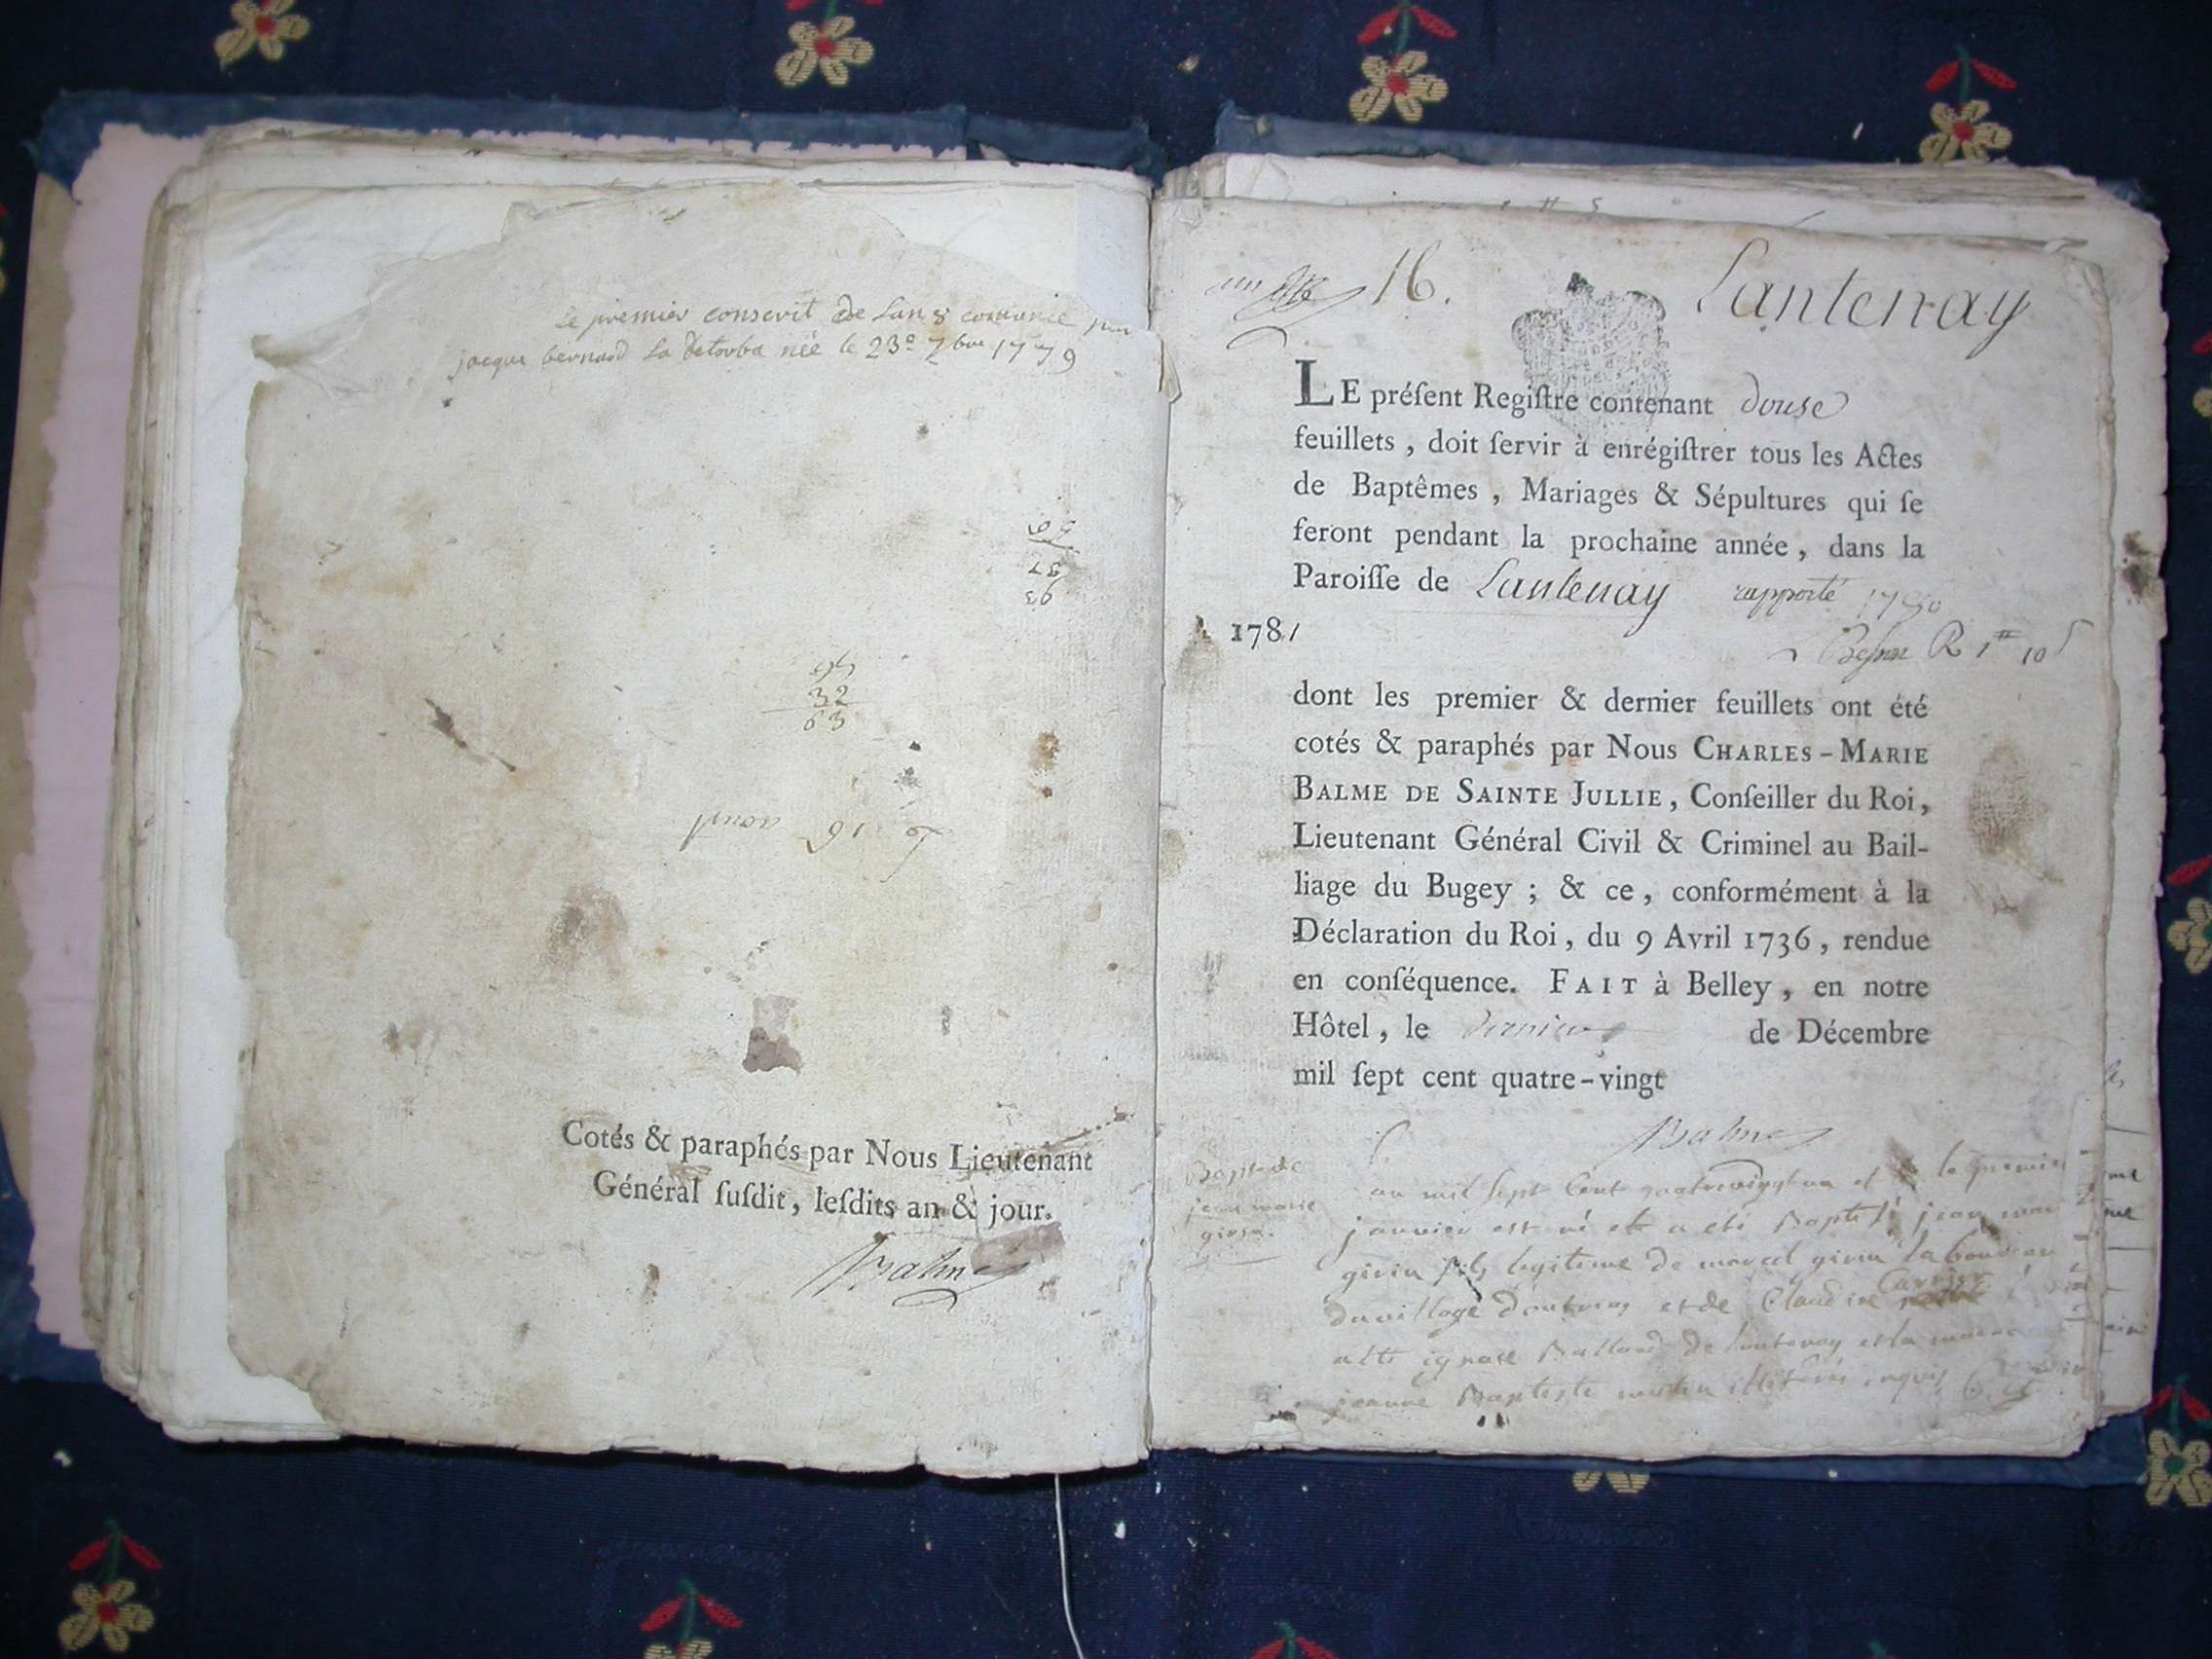 Le premier conscrit de Lan 8 comence par
jacque bernard La detorba née le 23e 7bre 1779
59
37
93
95
32
63
16 aoust
Cotés & paraphés par Nous Lieutenant
Général ſuſdit, leſdits an & jour.
Balme
un 16. Lantenay
LE préſent Regiſtre contenant douse
feuillets, doit ſervir à enrégiſtrer tous les Actes
de Baptêmes, Mariages & Sépultures qui ſe
feront pendant la prochaine année, dans la
Paroiſſe de Lantenay rapporté 1780
1781
R 1# 10s
dont les premier & dernier feuillets ont été
cotés & paraphés par Nous CHARLES-MARIE
BALME DE SAINTE JULLIE, Conſeiller du Roi,
Lieutenant Général Civil & Criminel au Bail-
liage du Bugey ; & ce, conformément à la
Déclaration du Roi, du 9 Avril 1736, rendue
en conſéquence. FAIT à Belley, en notre
Hôtel, le dernier de Décembre
mil ſept cent quatre-vingt
Balme
Bapt de
jean marie
girin.
au mil sept cent quatrevingt un et le premier
janvier est né et a été Baptisé jean mar
girin fils legitime de marcel girin laboureur
du village d'outriaz et de Claudine Carrier
ignace Ballard de lantenay et la maraine
jeanne Baptiste illiterés enquis